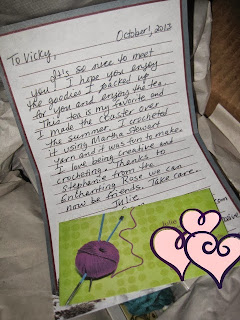 October 1, 2013
To Vicky,
It's so nice to meet
you! I hope you enjoy
the goodies I packed up
for you and enjoy the tea.
This tea is my favorite and
I made the coaster over
the summer. I crocheted
it using Martha Stewart
yarn and it was fun to make.
I love being creative and
crocheting. Thanks to
Stephanie from the
Enchanting Rose we can
now be friends. Take care.
Julie
Julie
.com